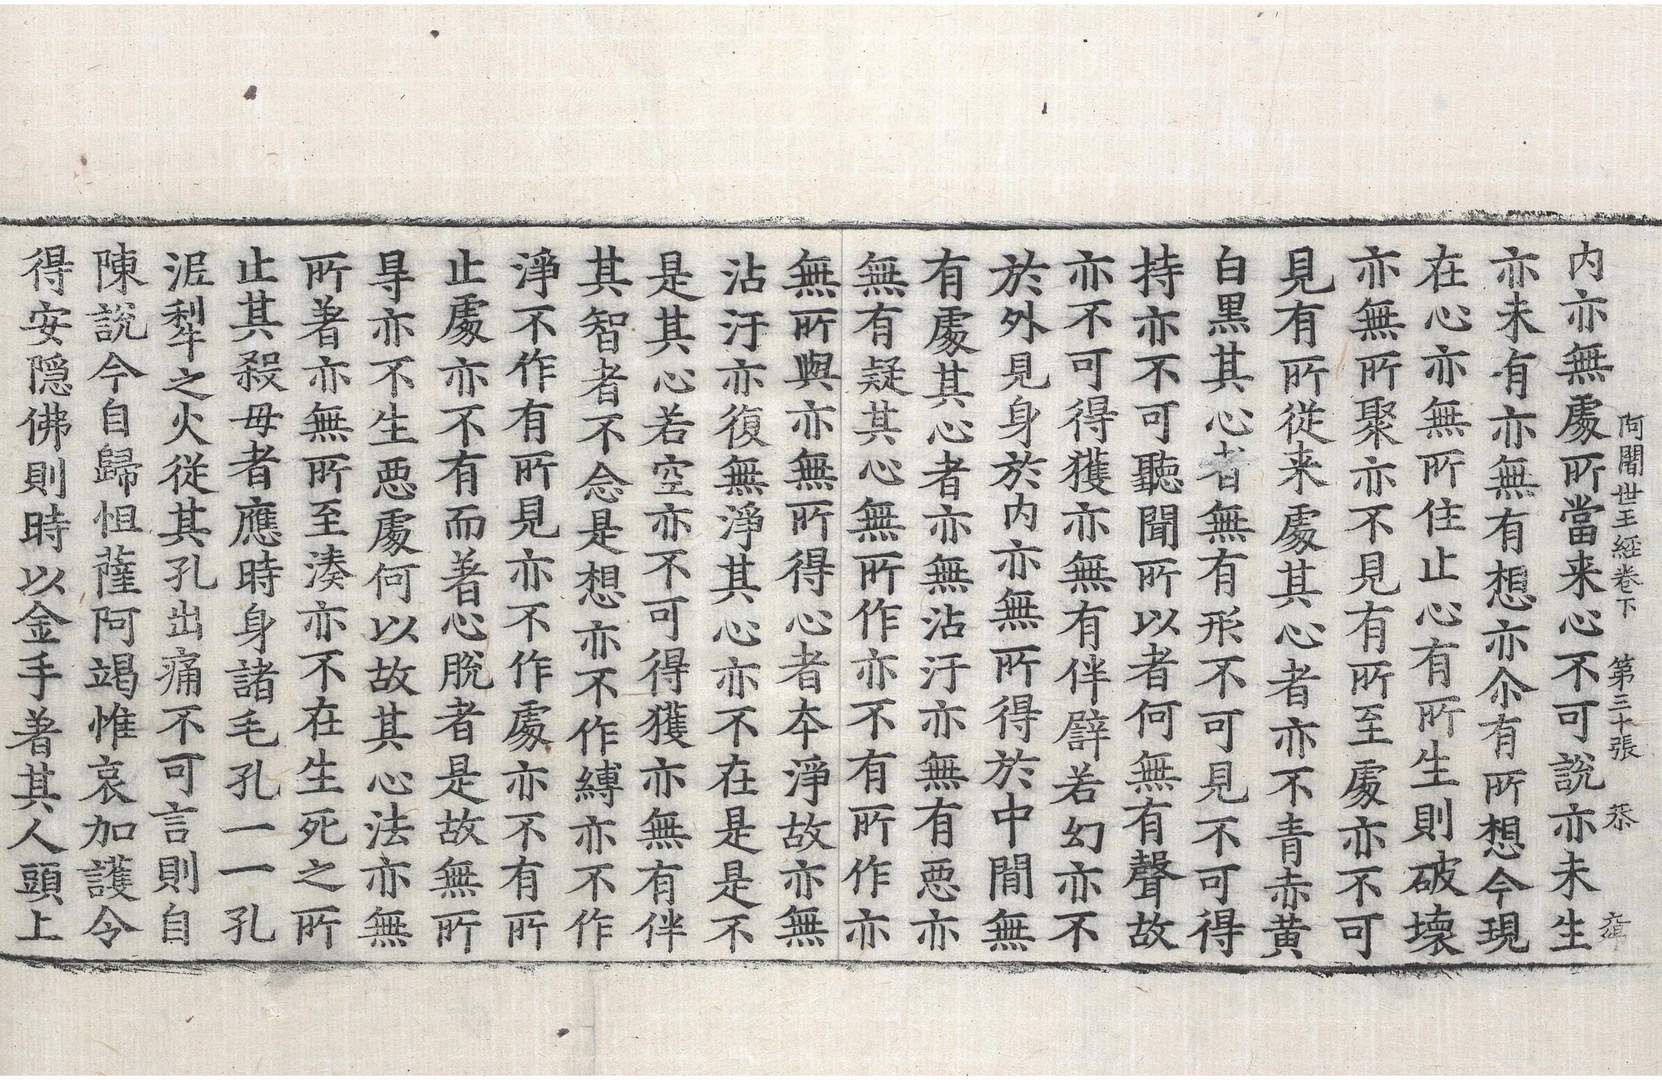 阿闍世王経卷下　第三十張　㳟
内亦無處所當来心不可說亦未生
亦未有亦無有想亦尒有所想今現
在心亦無所住止心有所生則破壞
亦無所聚亦不見有所至處亦不可
見有所從来處其心者亦不青赤黄
白黒其心者無有形不可見不可得
持亦不可聽聞所以者何無有聲故
亦不可得獲亦無有伴譬若幻亦不
於外見身於内亦無所得於中閒無
有處其心者亦無沾汙亦無有惡亦
無有疑其心無所作亦不有所作亦
無所與亦無所得心者本淨故亦無
沾汙亦復無淨其心亦不在是是不
是其心若空亦不可得獲亦無有伴
其智者不念是想亦不作縛亦不作
淨不作有所見亦不作處亦不有所
止處亦不有而著心脫者是故無所
㝵亦不生惡處何以故其心法亦無
所著亦無所至湊亦不在生死之所
止其殺母者應時身諸毛孔一一孔
泥犁之火從其孔出痛不可言則自
陳說今自歸怛薩阿竭惟哀加護令
得安隱佛則時以金手著其人頭上